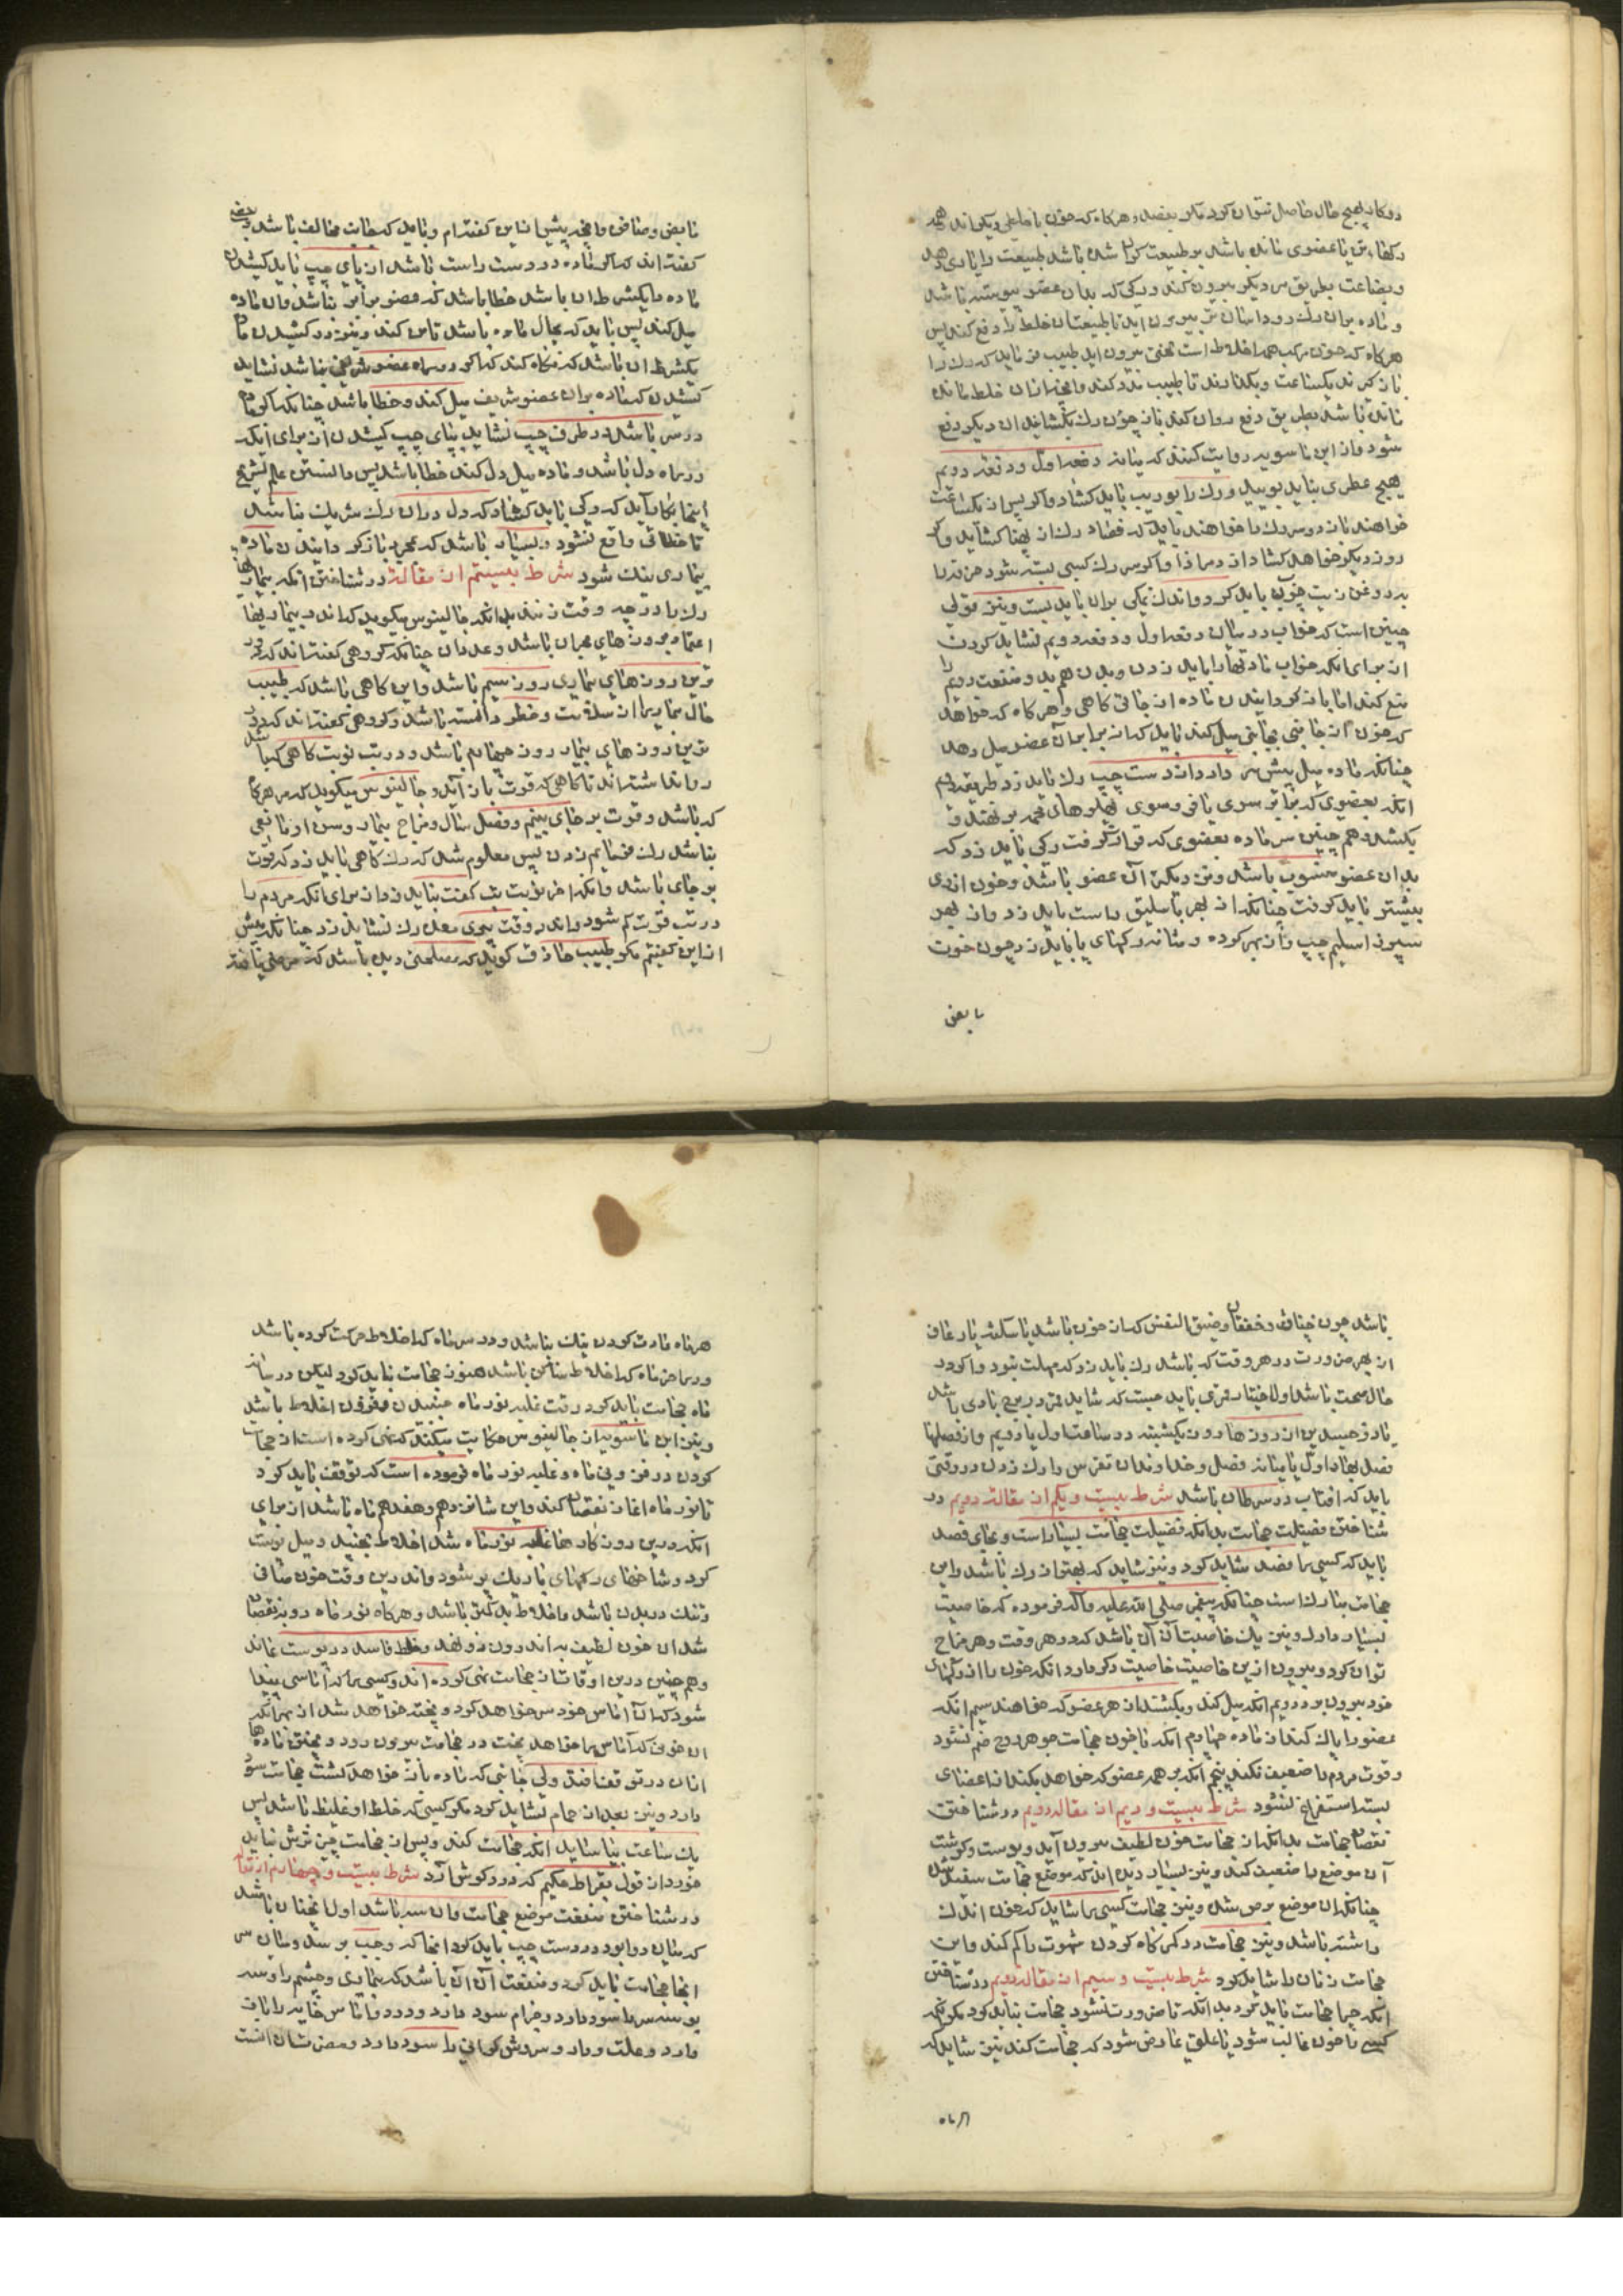 دوکانه بهیچ حال حاصل نتوان کرد مکر بفصد و هرکاه که خون با خلطی دیکر اندر همه
رکها تن یا عضوی مانده باشد بر طبیعت کران شده باشد طبیعت را یاری دهد
و بصناعت بطریق دیکر بیرون کند و رکی که بدان عضو پیوسته باشد
و ماده بدان رک رود آسان تر بیرون آید تا طبیعت آن خلط را دفع کند پس
هرکاه که خون مرکب همه اخلاط است بیرون آید طبیب باید که رک را
باز کیرند یکساعت و بکذارند تا طبیب مدد کند و آنچه از آن خلط مانده
مانده باشد بطریق دفع روان کند باز چون رک بکشایند آن دیکر دفع
شود و از ابن ماسویه روایت کنند که میانه دفعه اول و دفعه دویم
هیچ عطری نباید بویید و رک را بوریب باید کشاد و اکر پس از یکساعت
خواهند باز دوم رک را خواهند باید که فصاد رک از پهنا کشاید و اکر
روز دیکر خواهد کشاد از درازا و اکر رک کسی بسته نشود
بروغن زیت چرب باید کرد و اندک نمکی بران باید بست و نیز قولی
چنین است که خواب در میان دفعه اول و دفعه دویم نشاید کردن
از برای آنکه خواب مادتها را باید زدن و بدن هم بد و منفعت دویم را
منع کند اما باز کردانیدن ماده از جائی کاهی و هرکاه که خواهد
که خون از جائی بجائی میل کند باید که از برابر آن عضو میل دهد
چنانکه ماده میل پیش دارد از دست چپ رک باید زد طریقه دیم
آنکه بعضوی که برابر سوی یا فروسوی پهلوهای محجمه بر نهند و
بکشد و هم چنین ماده بعضوی که قرار کرفت رکی باید زد که
بدان عضو منسوب باشد و نزدیکتر آن عضو باشد و خون ازوی
بیشتر باید کرفت چنانکه از بهر باسلیق راست باید زد و از بهر
سپرز اسیلم چپ و از بهر کرده و مثانه رکهای پا باید زد چون خون
بابض
مابض و صافن و آنچه پیش ازین کفته‌ام و باید که جانب مخالف باشد و بعضی
کفته اند که اکر ماده در دست راست باشد از پای چپ باید کشیدن
ماده را یکشرط آن باشد خطا باشد که عضو برابر نباشد و آن ماده
میل کند پس باید که بحال ماده باشد تامل کند و نیز در کشیدن ماده
یکشرط آن باشد که نکاه کند که اکر در راه عضو شریفی باشد نشاید
کشیدن که ماده بران عضو شریف میل کند و خطا باشد چنانکه اکر ماده
در سر باشد در طرف چپ نشاید بپای چپ کشیدن از برای آنکه
در راه دل باشد و ماده میل دل کند خطا باشد پس دانستن علم تشریح
اینجا بکار آید که رکی باید کشاد که دل در آن رک شریک نباشد
تا خطائی واقع نشود و بسیار باشد که بمجرد باز کردانیدن ماده
بیماری نیک شود شرط بیستم از مقاله در شناختن آنکه بیماریها
رک را در چه وقت زنند بدانکه جالینوس میکوید که اندر بیماریها
اعتماد بروزهای بحران باشد و عدد آن چنانکه کروهی کفته اند که
ترین روزهای بیماری روز سیم باشد و این کاهی باشد که طبیب
حال بیمار را از سلامت و خطر دانسته باشد و کروهی کفته اند که
ترین روزهای بیمار روز چهارم باشد و در تب نوبت کاهی که باشد
روا نداشته اند تا کاهی که قوت باز آید و جالینوس میکوید که هرکاه
که باشد و قوت بر جای بینم و فصل سال و مزاج بیمار و سن او مانعی
نباشد رک میزنم پس معلوم شد که رک کاهی باید زد که قوت
بر جای باشد و آنکه اخر نوبت تب کفت نباید زدن از برای آنکه مردم را
در تب قوت کم شود و اندر وقت پری معده رک نشاید زد چنانکه پیش
ازین کفتیم مکر طبیب حاذق کوید که مصلحتی دیده باشد که
باشد چون خناق و خفقان و ضیق النفس که از خون باشد یا سکته یا رعاف
از بهر ضرورت در هر وقت که باشد رک باید زد که مهلت نبود و اکر در
حال صحت باشد اول اختیار قمری باید جست که شاید قمر در برج بادی باشد
از روزها روز یکشنبه در ساعت اول یا دویم و از فصلها
فصل بهار اول یا میانه فصل و خداوندان نقرس را رک زدن در وقتی
باید که افتاب در سرطان باشد شرط بیست و یکم از مقاله دویم در
شناختن فضیلت حجامت بدانکه فضیلت حجامت بسیار است و بجای فصد
باید که کسی را فصد نشاید کرد و نیز شاید که بهتر از رک باشد و این
حجامت مبارک است چنانکه پیغمبر صلی الله علیه و آله فرموده که خاصیت
بسیار دارد و نیز یک خاصیت آن آن باشد که در هر وقت و هر مزاج
توان کرد و بیرون ازین خاصیت خاصیت دکر دارد آنکه خون را از رکهای
خود بیرون برد دویم آنکه میل کند و بکشد از هر عضو که خواهند سیم آنکه
عضو را پاک کند از ماده چهارم آنکه با خون حجامت جوهر روح ضم نشود
و قوت مردم را ضعیف نکند پنجم آنکه بر همه عضو که خواهد بکند از اعضای
بسته استفراغ نشود شرط بیست و دیم از مقاله دویم در شناختن
نقصان حجامت بدانکه از حجامت خون لطیف بیرون آید و پوست و کوشت
آن موضع را ضعیف کند و نیز بسیار دیده اند که موضع حجامت سفید شد
چنانکه آن موضع برص شد و نیز حجامت کسی را شاید که خون اندک
داشته باشد و نیز حجامت در کمرکاه کردن شهوت را کم کند و این
حجامت زنان را شاید کرد شرط بیست و سیم از مقاله دویم در شناختن
آنکه چرا حجامت باید کرد بدانکه تا ضرورت نشود حجامت نباید کرد مکر آنکه
کسی را خون غالب شود یا علتی عارض شود که حجامت کند نیز شاید که
هرماه
هر ماه عادت کردن نیک نباشد و در سر ماه که اخلاط حرکت کرده باشد
و در آخر ماه که اخلاط ساکن باشد همنوز حجامت نباید کرد لیکن در میانه
ماه حجامت باید کرد در وقت غلبه نور ماه جنبیدن و افزون اخلاط باشد
و نیز ابن ماسویه از جالینوس حکایت میکند که نهی کرده است از حجامت
کردن در فزونی ماه و غلبه نور ماه فرموده است که توقف باید کرد
تا نور ماه آغاز نقصان کند و این شانزدهم و هفدهم ماه باشد از برای
آنکه درین روز کارها غلبه نور ماه شد اخلاط بجنبد و میل پوست
کرد و شاخهای رکهای باریک پر شود و اندرین وقت خون صافی
و تنک در بدن باشد و اخلاط بد کمتر باشد و هرکاه نور ماه رو بنقصان
شد آن خون لطیف به اندرون رو نهد و خلط فاسد در پوست بماند
و هم چنین درین اوقات از حجامت نهی کرده اند و کسی را که آماسی پیدا
شود که آن آماس خود سر خواهد کرد و پخته خواهد شد از بهر آنکه
آن خونی که آماس را خواهد پخت در حجامت بیرون رود و پختن ماده‌ها
از آن در توقف افتد ولی جائی که ماده باز خواهد کشت حجامت سود
دارد و نیز بعد از حمام نشاید کرد مکر کسی که خلط او غلیظ باشد پس
یک ساعت بیاساید آنکه حجامت کند و پس از حجامت چیز ترش نباید
خورد از قول بقراط حکیم که درد کوش آرد شرط بیست و چهارم از مقاله
در شناختن منفعت موضع حجامت و آن سه باشد اول آنچنان باشد
که میان دو ابرو در دست چپ باید کرد آنجا که وجب برسد و میان سر
آنجا حجامت باید کرد و منفعت آن آن باشد که بیماری و چشم را و سر
بوسه سر را سود دارد و جذام سود دارد و درد و آماس خایه را باز
دارد و علت و باد و سروش کرانی را سود دارد و بعضی نشان است